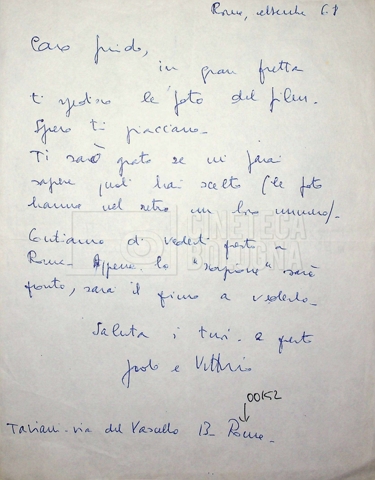 Roma, dicembre 68
Caro Guido,
in gran fretta
ti spedisco le foto del film.
Spero ti piacciano.
Ti sarò grato se mi farai
sapere quali hai scelto (le foto
hanno nel retro un loro numero).
Contiamo di vederti presto a
Roma. Appena lo "scorpione" sarà
pronto, sarai il primo a vederlo.
CINETECA
BOLOGNA
Saluta i tuoi. a presto
Paolo e Vittorio
00152
Taviani - via del Vascello 13 - Roma -